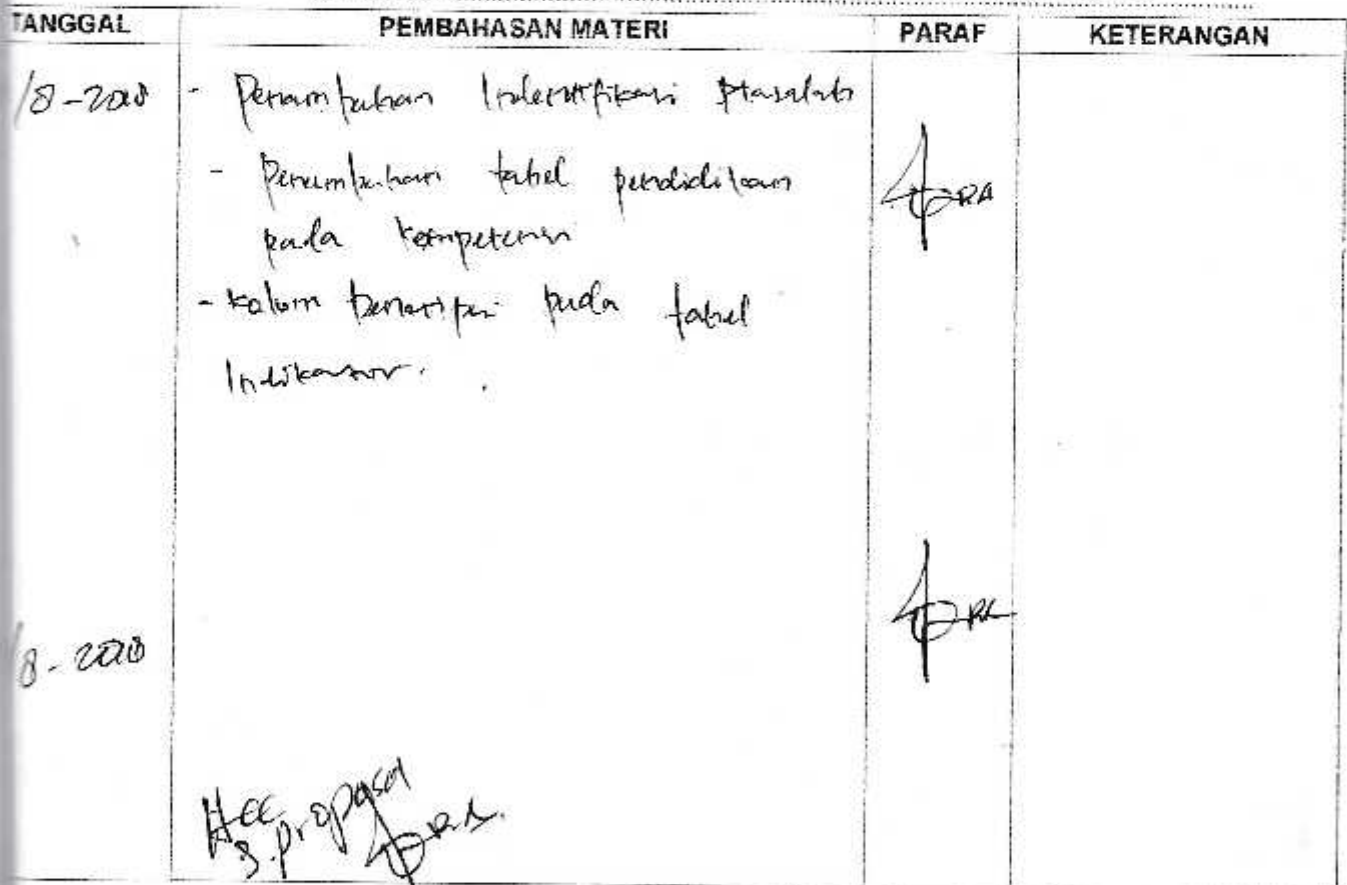 TANGGAL PEMBAHASAN MATERI PARAF KETERANGAN
/8-2018 - Penambahan Indentifikasi Masalah
- Penambahan tabel pendidikan
pada kompetensi
- Kolom pada tabel
Indikator.
/8-2018
ACC
S. proposal